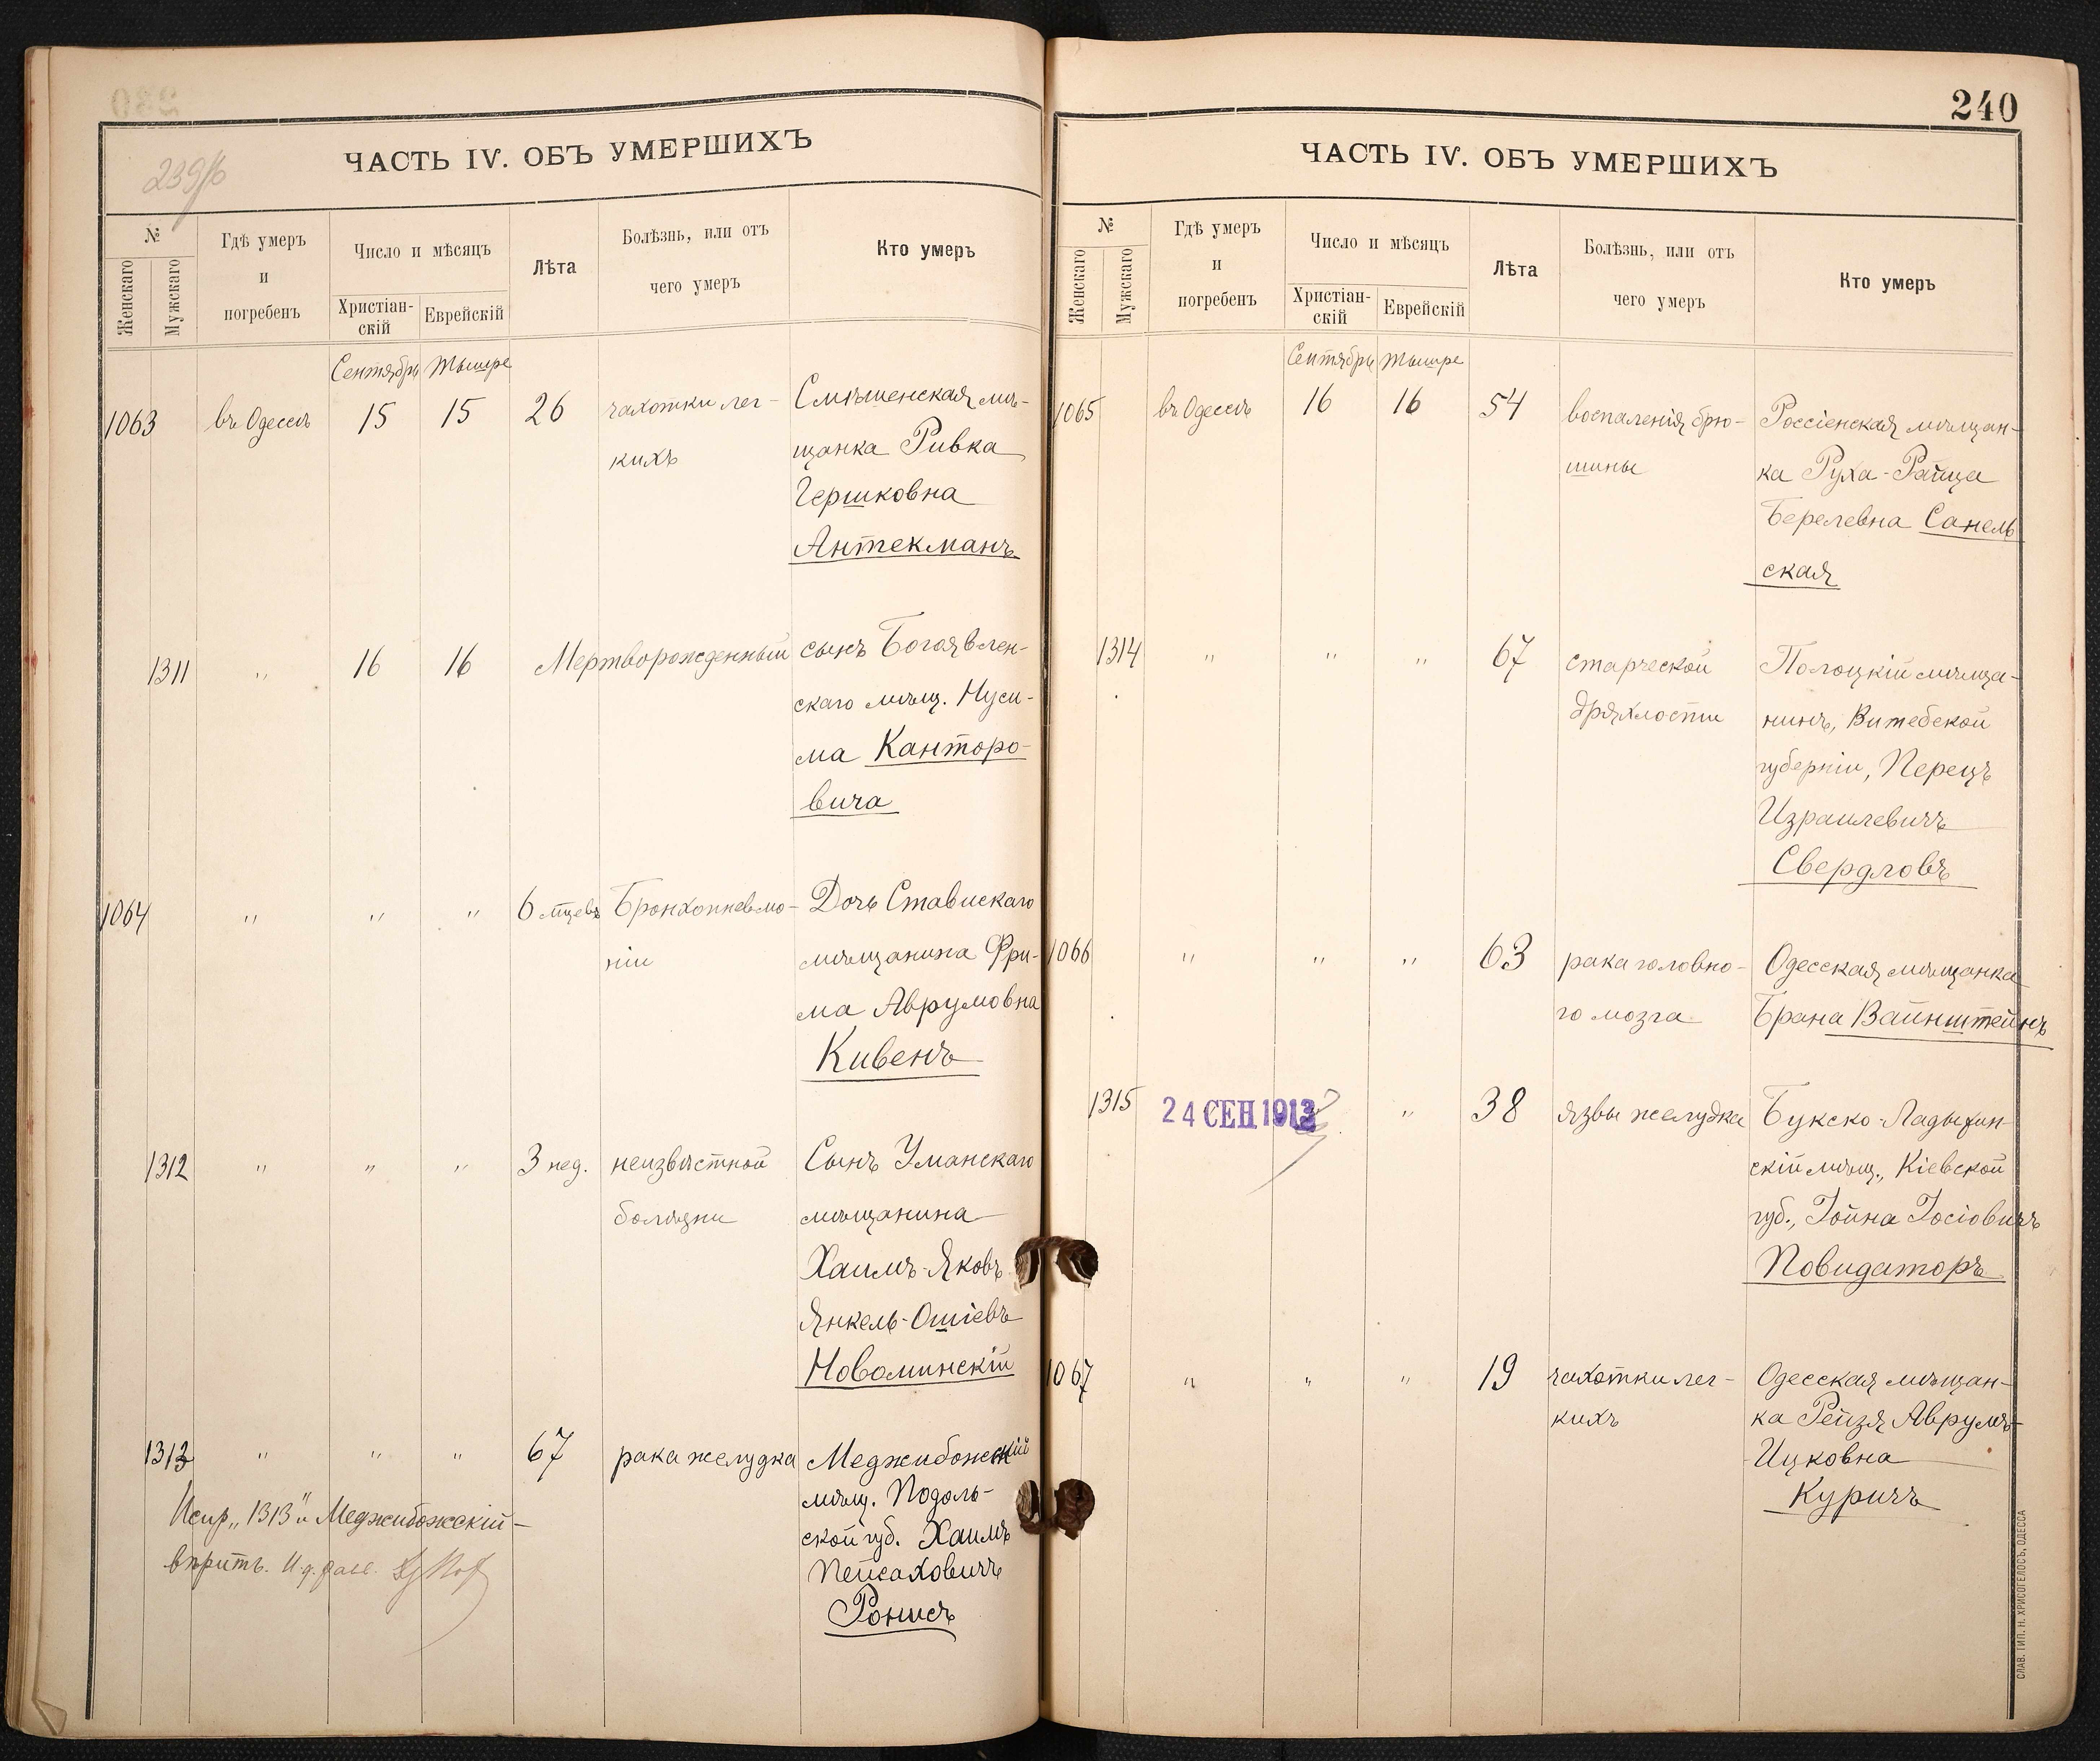 239/б
ЧАСТЬ IV. ОБЪ УМЕРШИХЪ
№
Женскаго
Мужскаго
Гдѣ умеръ
и
погребенъ
Число и мѣсяцъ
Христіан-
скій
Еврейскій
Лѣта
Болѣзнь, или отъ
чего умеръ
Кто умеръ
Сентябрь Тышре
1063 въ Одессѣ 15 15 26 чахотки лег-
кихъ
мѣ-
щанка Ривка
Гершковна
Антекманъ
1311 " 16 16 Мертворожденный сынъ Богоявлен-
скаго мѣщ. Нуси-
ма Канторо-
вича
1064 " " " 6 мцевъ Бронхопневмо-
ніи
Дочь Ставискаго
мѣщанина Фри-
ма Аврумовна
Кивенъ
1312 " " " 3 нед. неизвѣстной
болѣзни
Сынъ Уманскаго
мѣщанина
Хаимъ-Яковъ
Янкель-Ошіевъ
Новоминскій
1313 " " " 67 рака желудка
Меджибожскій
мѣщ. Подоль-
ской губ. Хаимъ
Пейсаховичъ
Ронисъ
Испр. „1313" и Меджибожскій-
вѣрить. И.д.
240
ЧАСТЬ IV. ОБЪ УМЕРШИХЪ
№
Женскаго
Мужскаго
Гдѣ умеръ
и
погребенъ
Число и мѣсяцъ
Христіан-
скій
Еврейскій
Лѣта
Болѣзнь, или отъ
чего умеръ
Кто умеръ
Сентябрь Тышре
1065 въ Одессѣ 16 16 54 воспаленія брю-
шины
Россіенская мѣщан-
ка Руха-Райца
Берелевна Санель
ская
1314 " " " 67 старческой
дряхлости
Полоцкій мѣща-
нинъ, Витебской
губерніи, Перецъ
Израилевичъ
Свердловъ
1066 " " " 63 рака головно-
го мозга
Одесская мѣщанка
Брана Вайнштейнъ
1315 24 СЕН 1912 " 38 язвы желудка
Букско-Ладыжин-
скій мѣщ., Кіевской
губ., Іойна Іосіовичъ
Повидаторъ
1067 " " " 19 чахотки лег-
кихъ
Одесская мѣщан-
ка Рейзя Аврумъ-
Ицковна
Куричъ
СЛАВ. ТИП. Н. ХРИСОГЕЛОСЪ, ОДЕССА